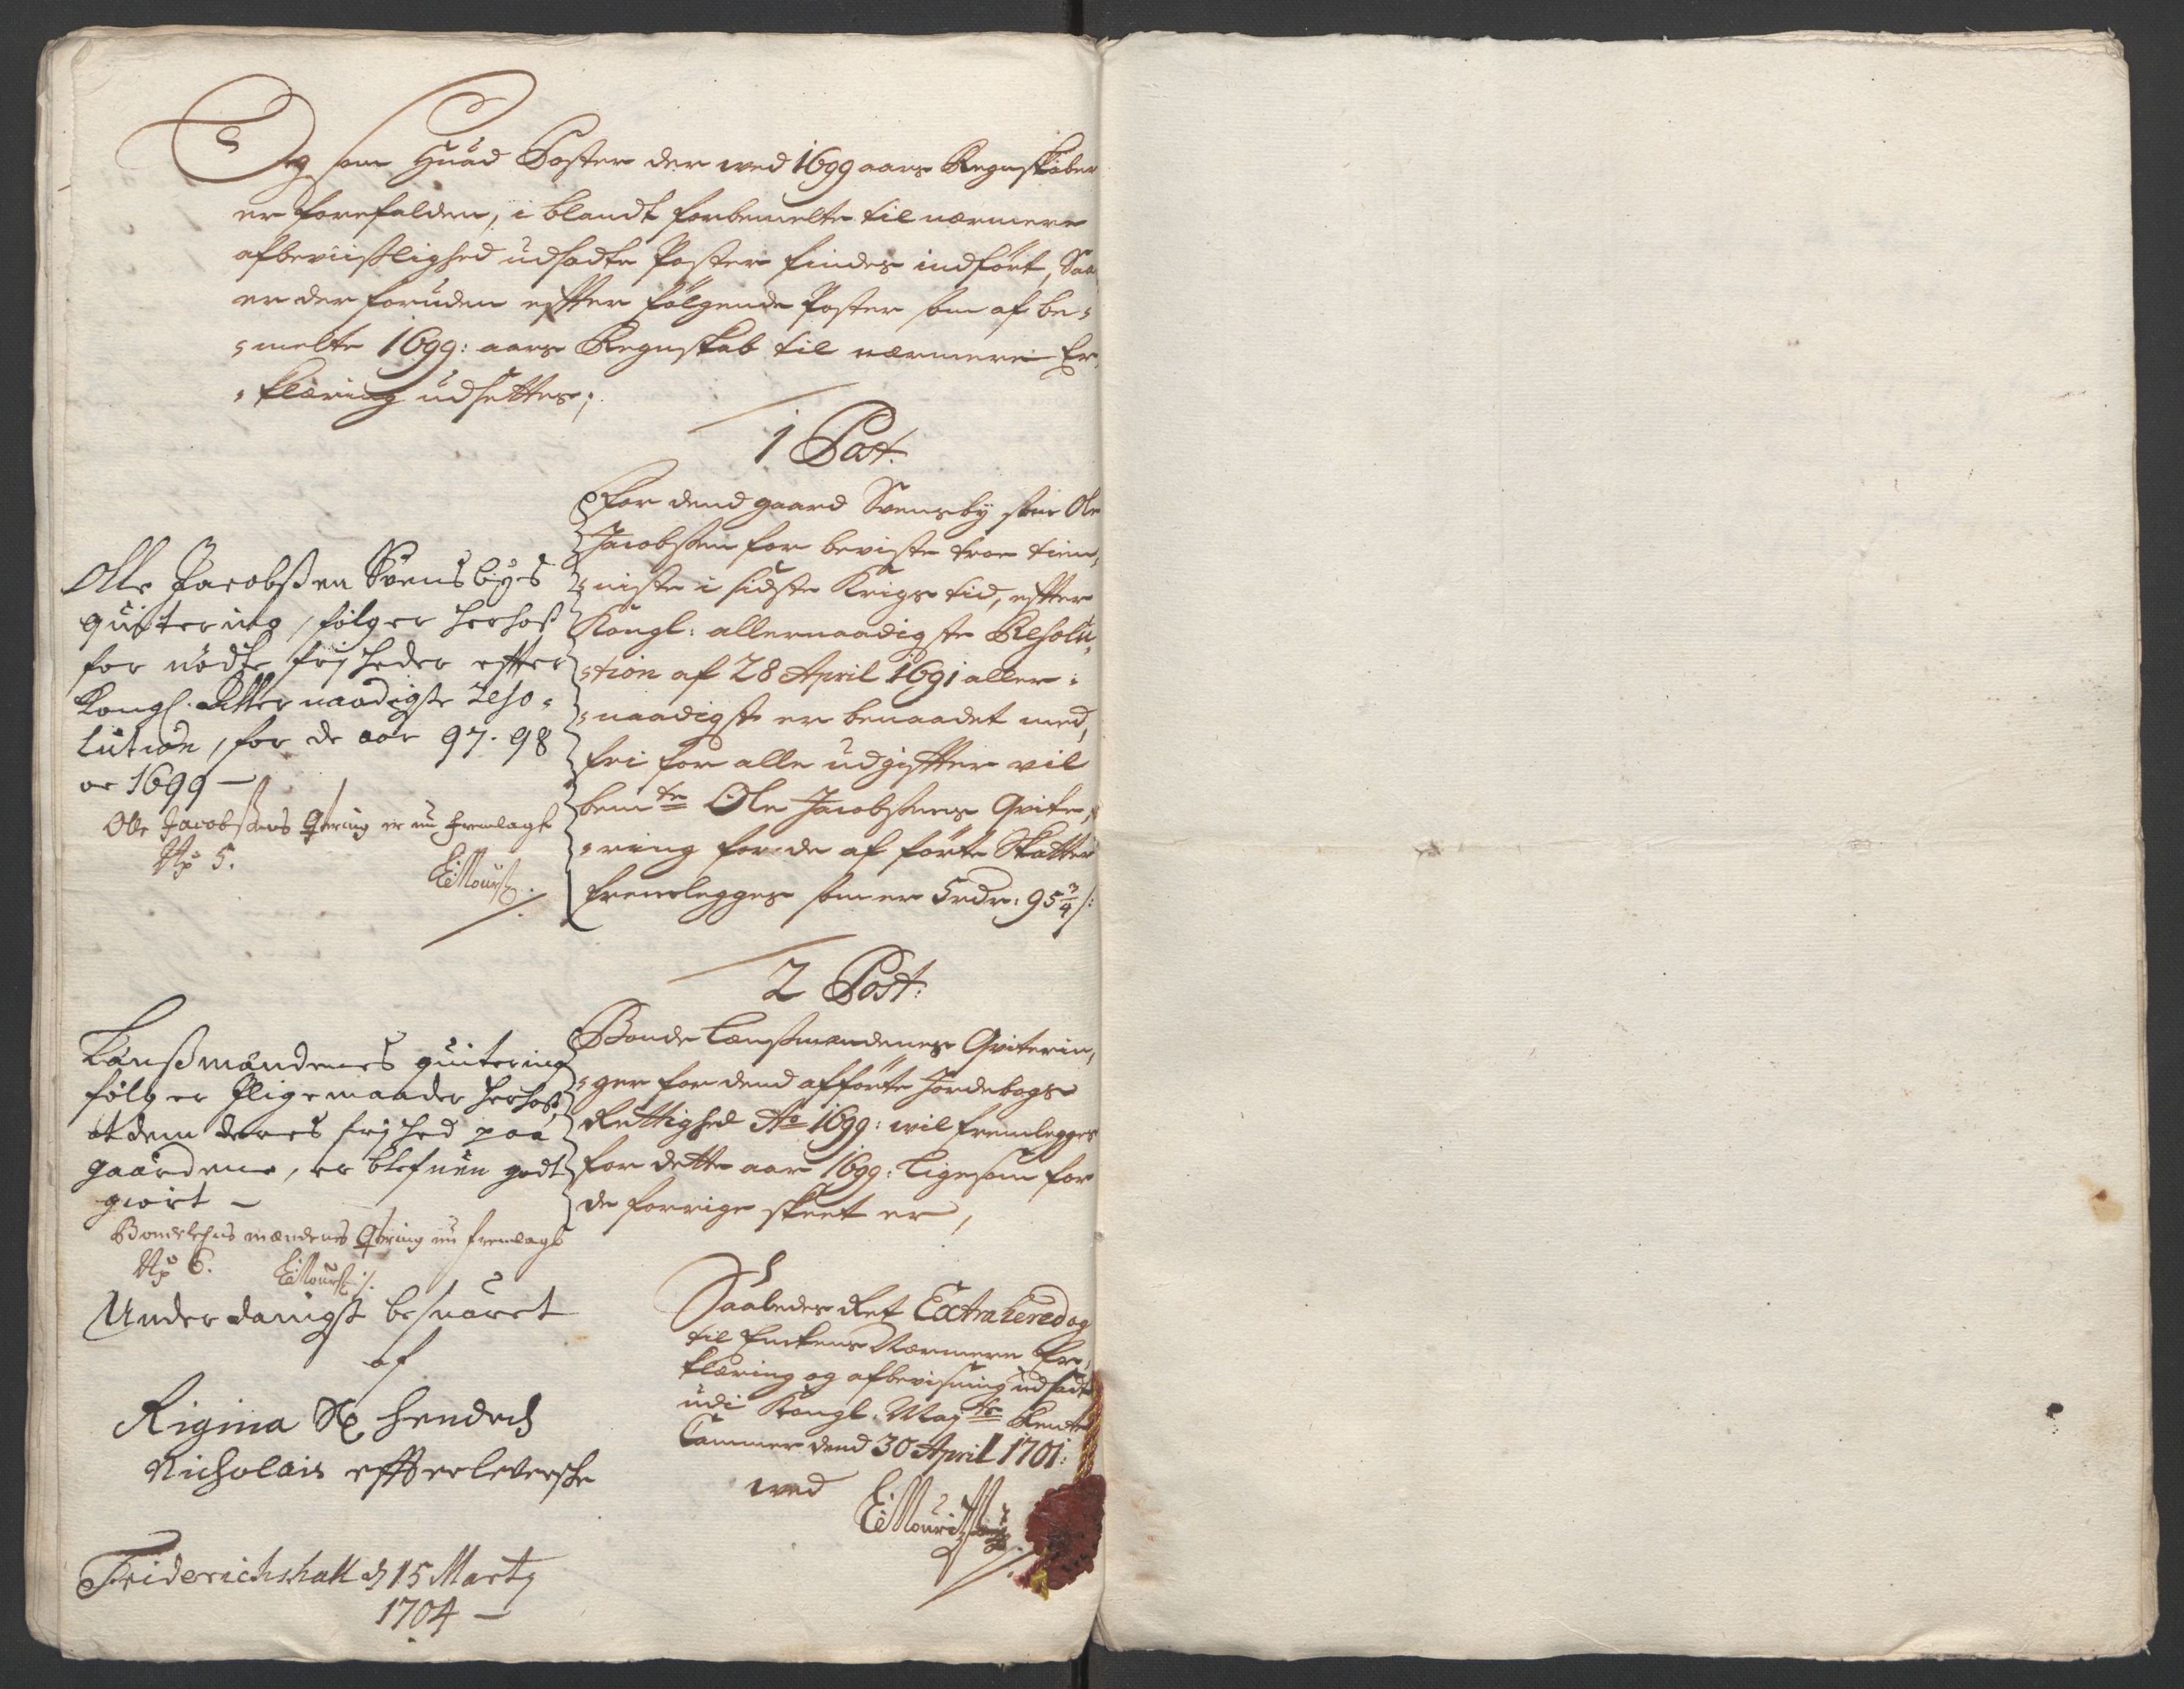 Og som Huad Poster der wed 1699 aars Regnskaber
er forefalden, i blandt forbemelte til nærmere
afbeviislighed udsadte Poster findes indført, Saa
er der foruden effter følgende Poster som af be-
-melte 1699: aars Regnskab til nærmere Er-
-klæring udsettes;
1 Post.
For dend gaard Svensby som Ole
Jacobssen for beviste troe tien-
-niste i sidste Krigs tid, effter
Kongl: allernaadigste Resolu-
-tion af 28 April 1691 aller-
-naadigst er benaadet med,
fri for alle udgiffter vil
bemte Ole Jacobssens Qvite-
-ring for de af førte Skatter
fremlegges som er 5 rdr: 95 3/4 s:
Olle Jacobssen Svensbÿes
quitering, følger herhos
for nødte frjheder effter
Kongl. Allernaadigste Reso-
lution, for de aar 97. 98
oc 1699 —
Olle Jacobssens Qtering er nu fremlagt
No 5.
2 Post:
Bonde Lensmendenes Qviterin-
-ger for dend afførte Jordebogs
Rettighed Ao 1699: wil fremlegges
for dette aar 1699: Ligesom for
de forrige skeet er,
Lensmændenes quitering
følger Iligemaader herhos,
at dem deres frjhed paa
gaardene, er blefuen godt
giort —
Bondelehns mændenes Qtering nu fremlagt
No 6.
Underdanigst besuaret
af
Rigina Sl. Hendrich
Nicholais effterleverske
Friderichshall d 15 Martj
1704 —
Saaledes Ret Extrahered og
til Enckens Nærmere Er-
klæring og afbevisning udsadt
udi Kongl. Mayts Rente
Cammer dend 30 April 1701:
wed